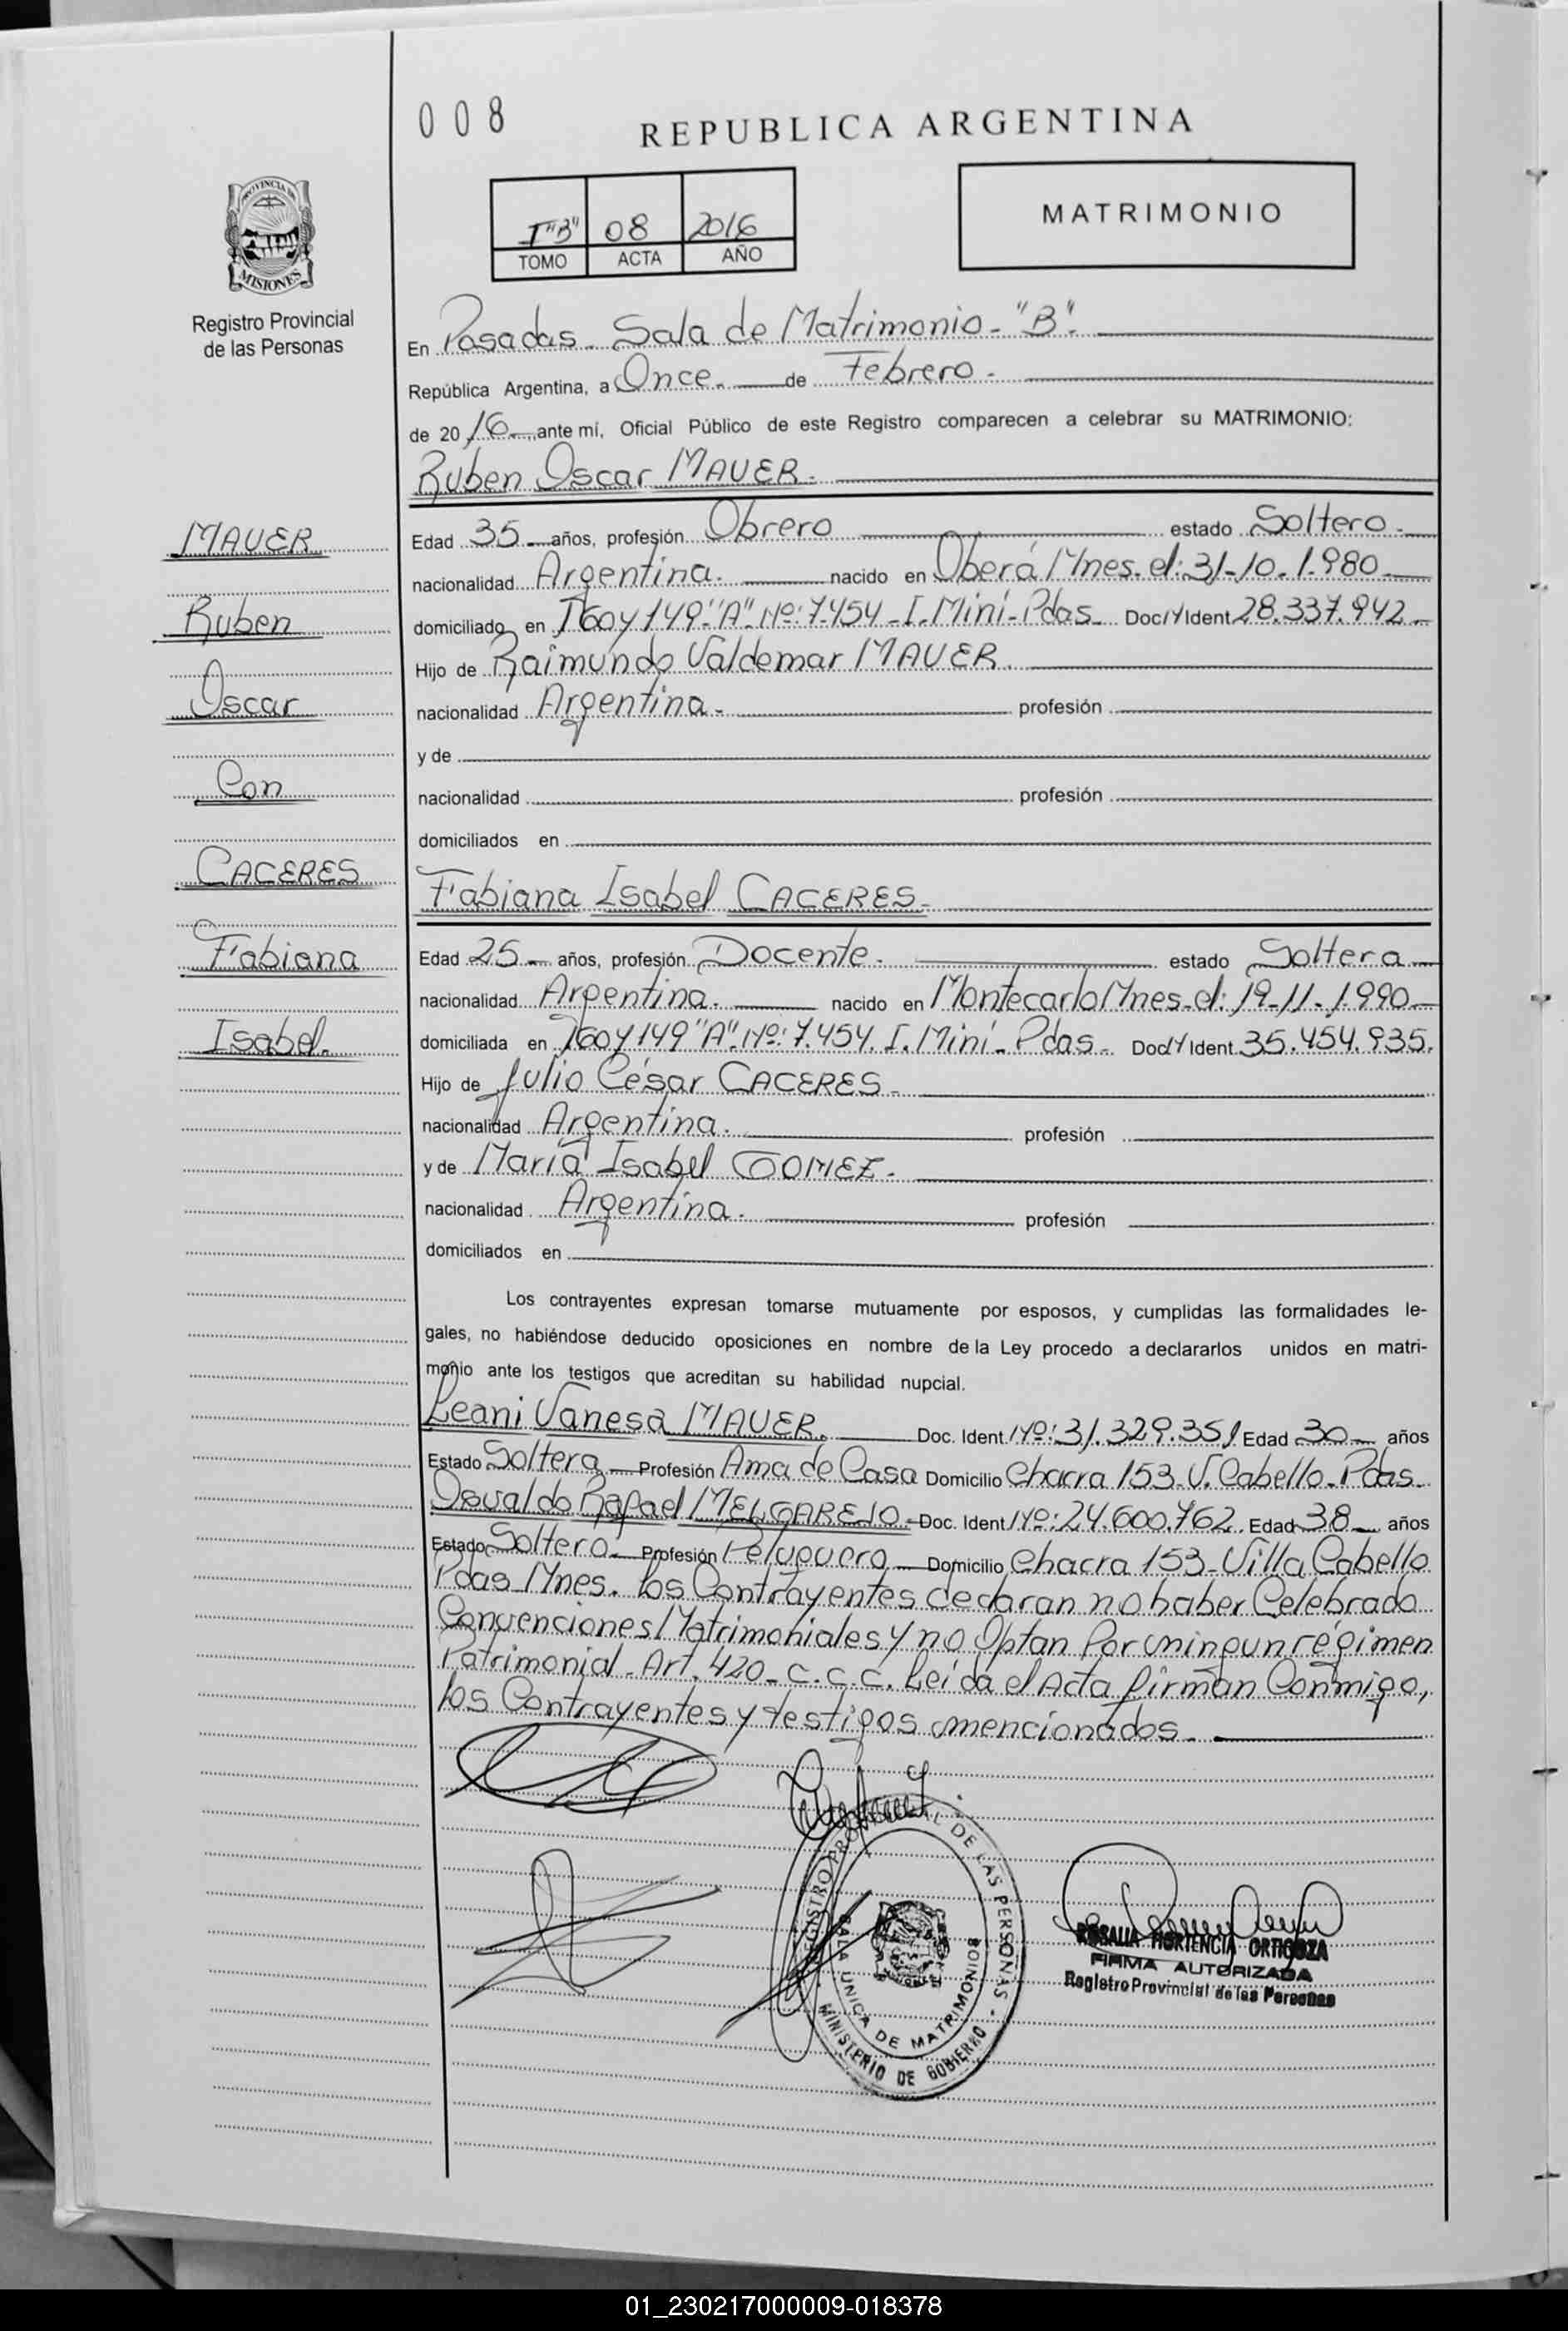 008
REPUBLICA ARGENTINA
I "B" 08 2016
TOMO ACTA AÑO
MATRIMONIO
PROVINCIA DE
MISIONES
Registro Provincial
de las Personas
En Posadas. Sala de Matrimonio - "B".
República Argentina, a Once. de Febrero.
de 2016 ante mí, Oficial Público de este Registro comparecen a celebrar su MATRIMONIO:
Ruben Oscar MAUER.
MAUER
Ruben
Oscar
Con
CACERES
Fabiana
Isabel.
Edad 35 años, profesión Obrero estado Soltero.
nacionalidad Argentina. nacido en Oberá Mnes. el: 31-10-1.980
domiciliado en 160 y 149 "A" Nº: 7.454 - I. Miní - Pdas Doc. Y Ident. 28.337.942
Hijo de Raimundo Valdemar MAUER.
nacionalidad Argentina. profesión
y de
nacionalidad profesión
domiciliados en
Fabiana Isabel CACERES.
Edad 25 años, profesión Docente. estado Soltera
nacionalidad Argentina. nacido en Montecarlo Mnes. el: 19-11-1.990
domiciliada en 160 y 149 "A" Nº: 7.454. I. Miní - Pdas. Doc. Y Ident. 35.454.935.
Hijo de Julio César CACERES.
nacionalidad Argentina. profesión
y de María Isabel GOMEZ.
nacionalidad Argentina. profesión
domiciliados en
Los contrayentes expresan tomarse mutuamente por esposos, y cumplidas las formalidades le-
gales, no habiéndose deducido oposiciones en nombre de la Ley procedo a declararlos unidos en matri-
monio ante los testigos que acreditan su habilidad nupcial.
Leani Vanesa MAUER. Doc. Ident. Nº: 31.329.351 Edad 30 años
Estado Soltera Profesión Ama de Casa Domicilio Chacra 153 - V. Cabello - Pdas.
Osvaldo Rafael MELGAREJO Doc. Ident. Nº: 24.600.762. Edad 38 años
Estado Soltero Profesión Peluquero Domicilio Chacra 153 - Villa Cabello
Pdas Mnes. Los Contrayentes declaran no haber Celebrado
Convenciones Matrimoniales y no Optan Por ningun régimen
Patrimonial. Art. 420 - C.C.C. Leída el Acta firman Conmigo,
los Contrayentes y testigos mencionados.
REGISTRO PROVINCIAL DE LAS PERSONAS
SALA UNICA DE MATRIMONIOS
MINISTERIO DE GOBIERNO
ROSALIA HORTENCIA ORTIGOZA
FIRMA AUTORIZADA
Registro Provincial de las Personas
01_230217000009-018378